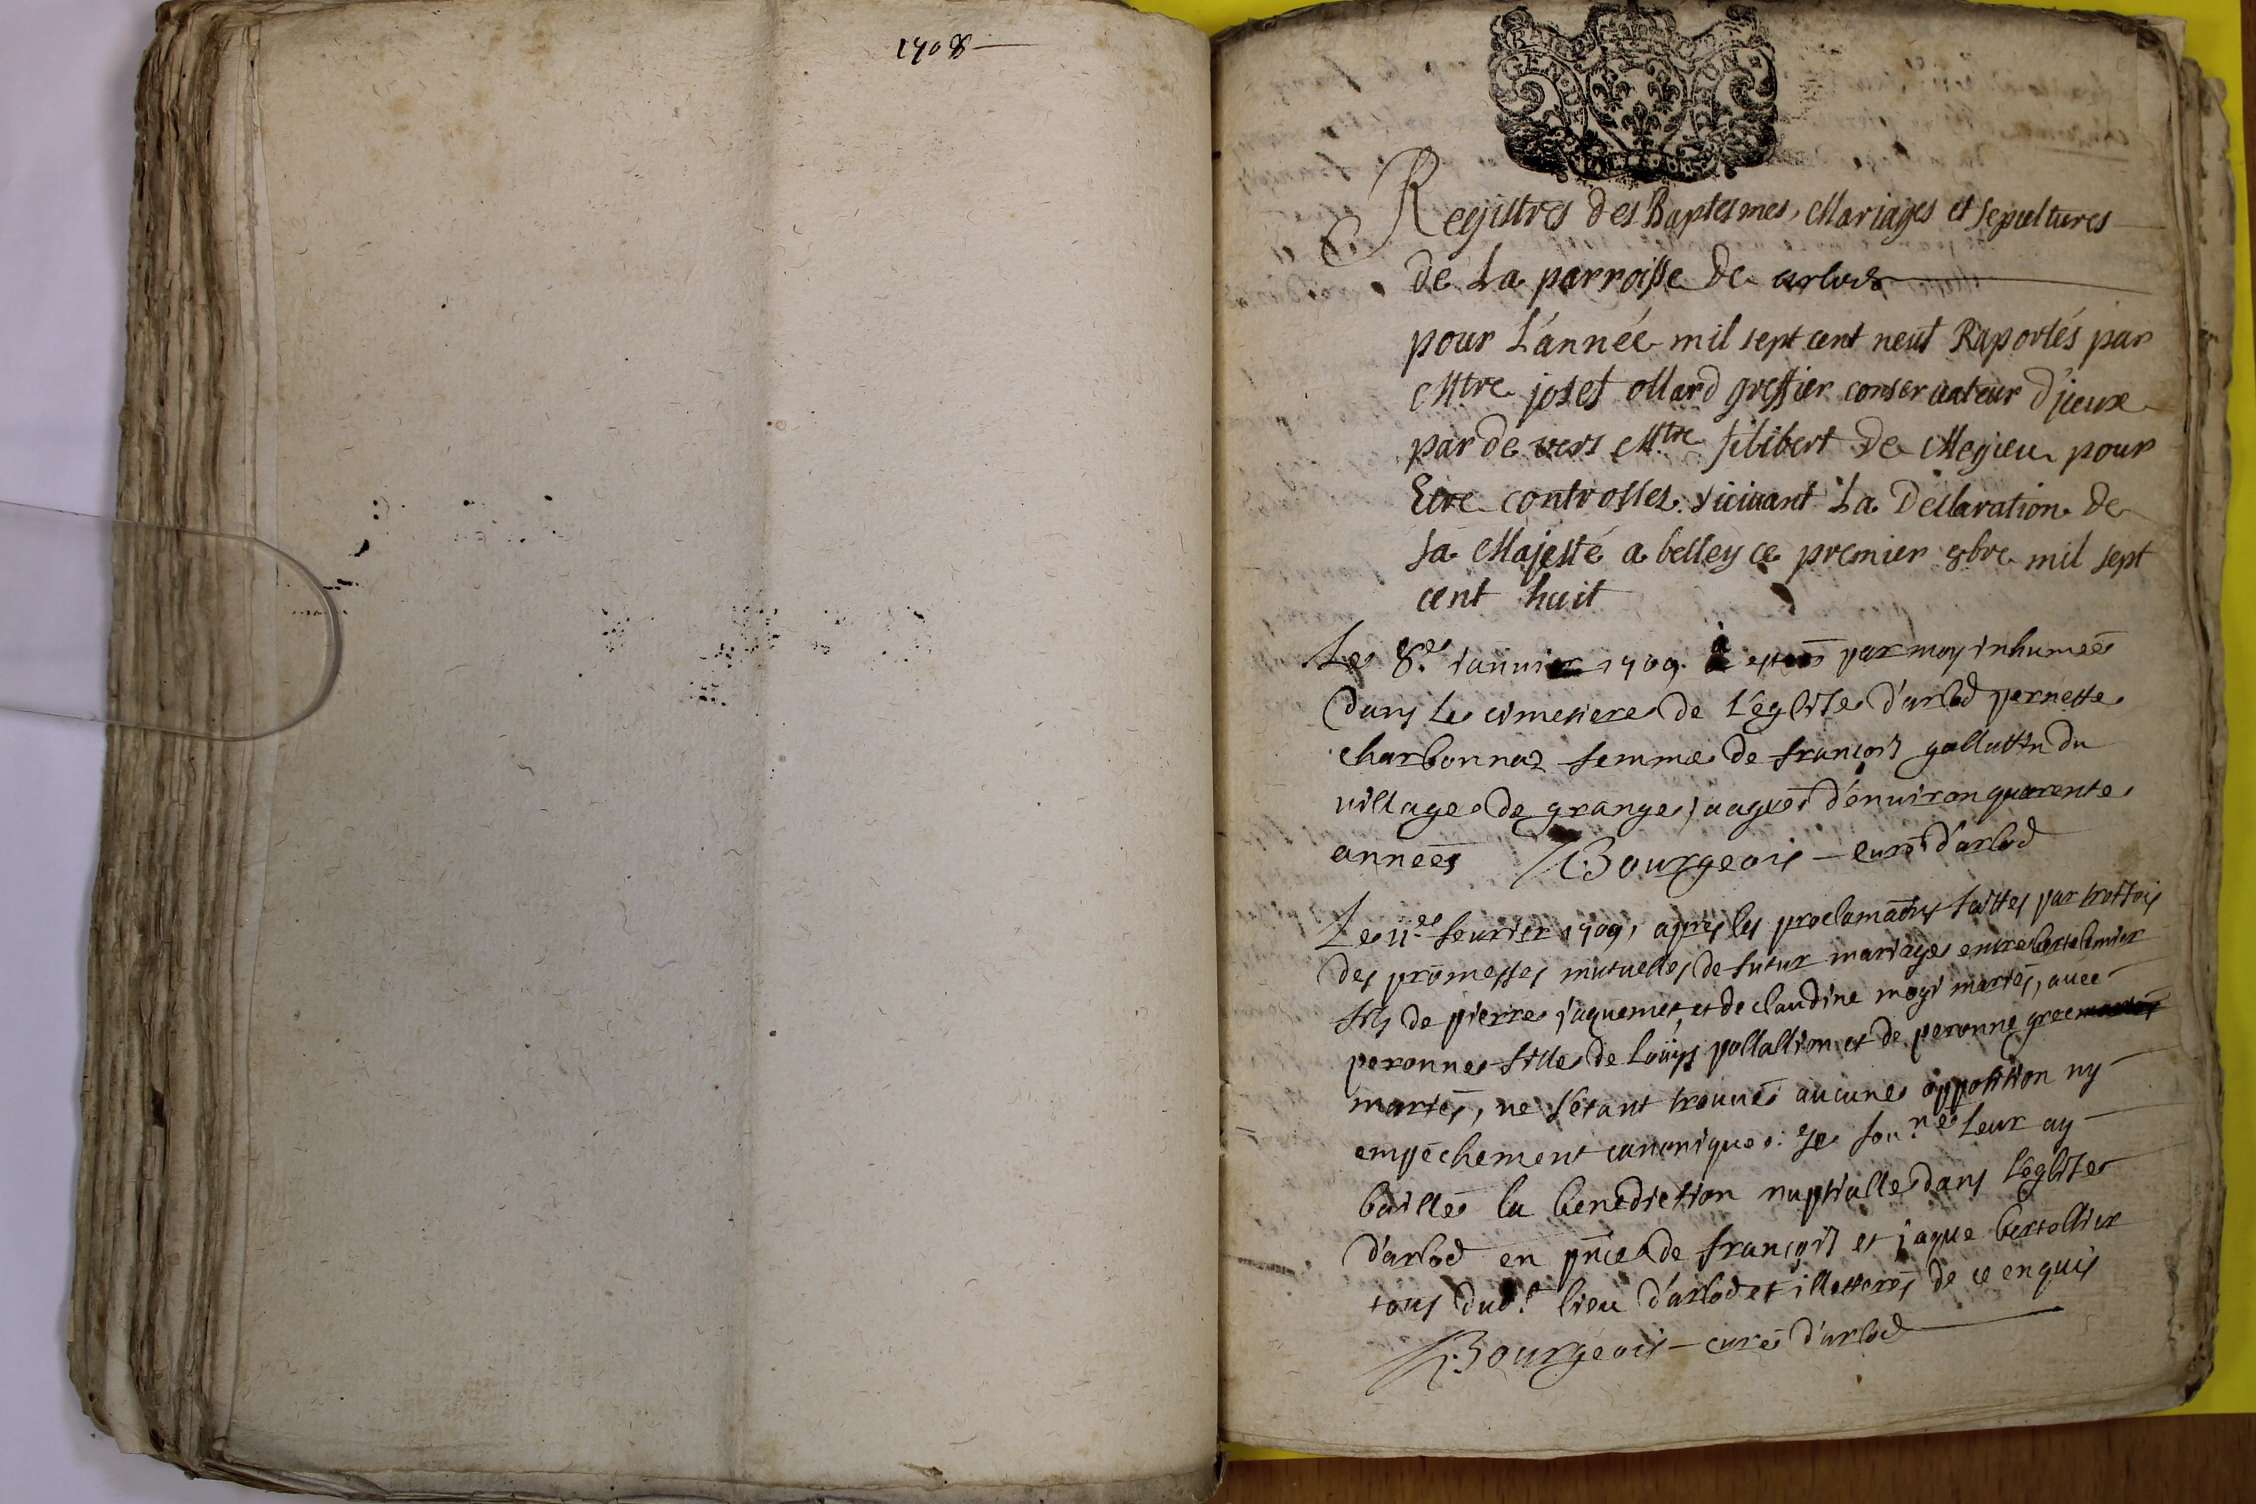 1708
GEN
Registres des Baptesmes, Mariages et sepultures
de La parroisse de arlod
pour L'année mil sept cent neuf Raportés par
Mtre josef ollard greffier conservateur d'iceux
par de vers Mtre filibert de Megieu pour
Etre controllez suivant La Declaration de
sa Majesté a belley ce premier 9bre mil sept
cent huit
Le 8.e januier 1709. à estée par moy inhumeé
dans le cimetiere de L'église d'arlod pernette
charbonnaz femme de françois gallattin du
village de granges, aageé d'enuiron quarente
années Bourgeois curé d'arlod
Le 11.e feurier 1709, apres les proclamaõns faittes par trois fois
des promesses mutuelles de futur mariage entre bertelemier
fils de pierre jaquemet, et de claudine mogi mariés, avec
peronne fille de Loüys pollallion et de peronne gree
mariés, ne s'étant trouué aucune opposition ny
empéchement canonique. Je sou.né leur ay
baillé la benediction nuptialle dans l'église
d'arlod en pñce de françois et jaque bertollier
tous dud.t lieu d'arlod et illetterés de ce enquis
Bourgeois curé d'arlod